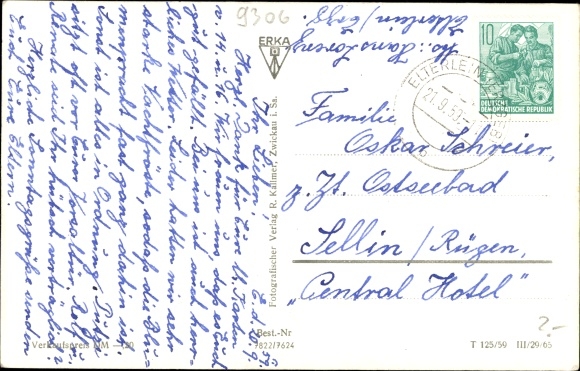 9306
Abs.: Hans Lorenz
Elterlein/Erzg.
ERKA
10
DEUTSCHE
DEMOKRATISCHE REPUBLIK
ELTERLEIN
21.9.59
b
Familie
Oskar Schreier,
z. Zt. Ostseebad
Sellin/Rügen,
"Central Hotel"
E. d. 20. 9. 59.
Ihr Lieben,
Herzl. Dank für Eure Karten
v. 14. u. 16. Wir freuen uns daß es Euch
gut gefällt. Bei uns ist auch herr-
liches Wetter. Leider hatten wir sehr
starke Nachtfröste, sodaß die Blu-
menpracht fast ganz dahin ist.
Sonst ist alles in Ordnung.
sitzt oft vor Eurer Haustür. Rolf u.
Renate sind Ihr hübsch verträglich?
Herzliche Sonntagsgrüße senden
Euch Eure Eltern.
Fotografischer Verlag R. Kallmer, Zwickau i. Sa.
Verkaufspreis DM —,20
Best.-Nr
7822/7624
T 125/59 III/29/65
2.-